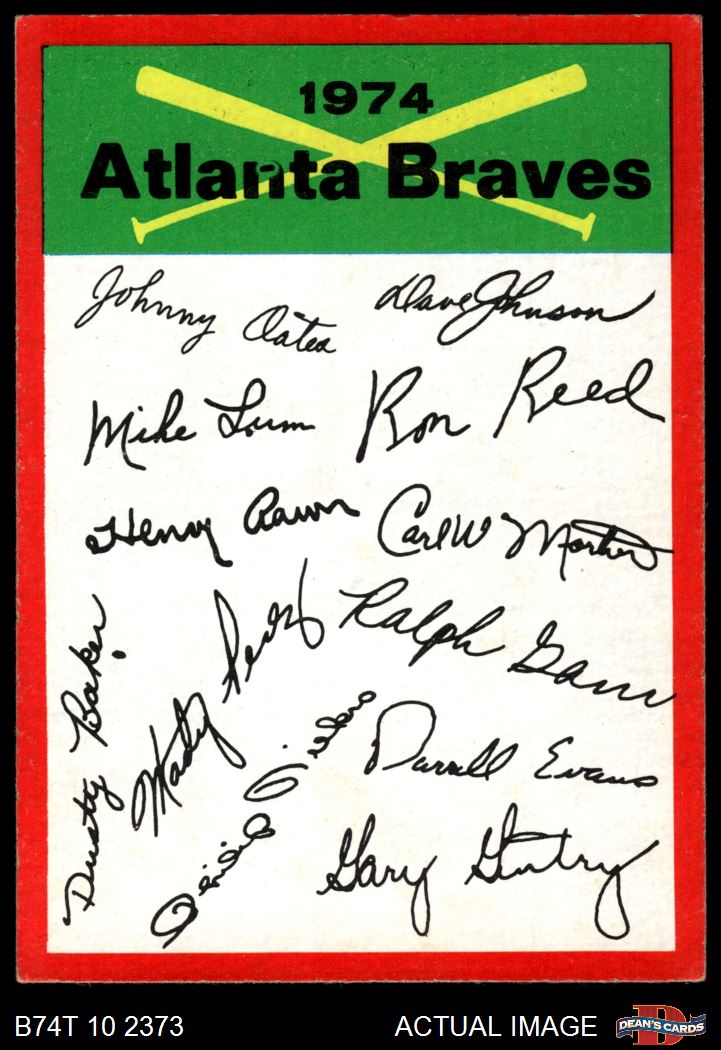 1974
Atlanta Braves
Johnny Oates
Dave Johnson
Mike Lum
Ron Reed
Henry Aaron
Carl W Morton
Dusty Baker
Marty Perez
Ralph Garr
Darrell Evans
Gary Gentry
B74T 10 2373
ACTUAL IMAGE
D
DEAN'S CARDS